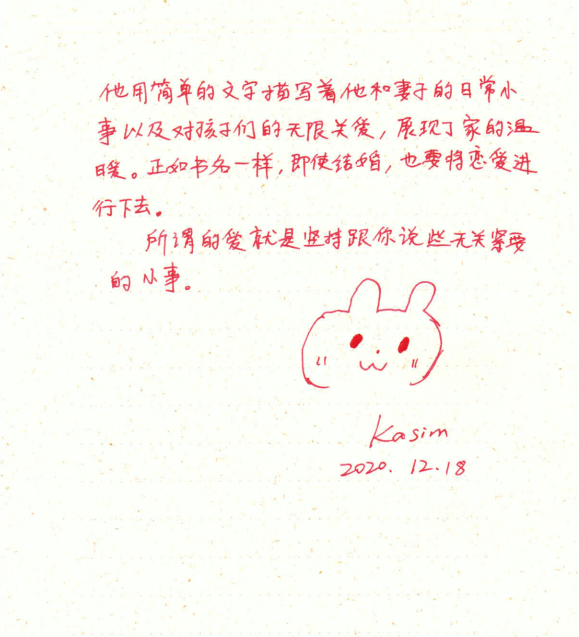 他用简单的文字描写着他和妻子的日常小
事以及对孩子们的无限关爱，展现了家的温
暖。正如书名一样，即使结婚，也要将恋爱进
行下去。
所谓的爱就是坚持跟你说些无关紧要
的小事。
Kasim
2020.12.18